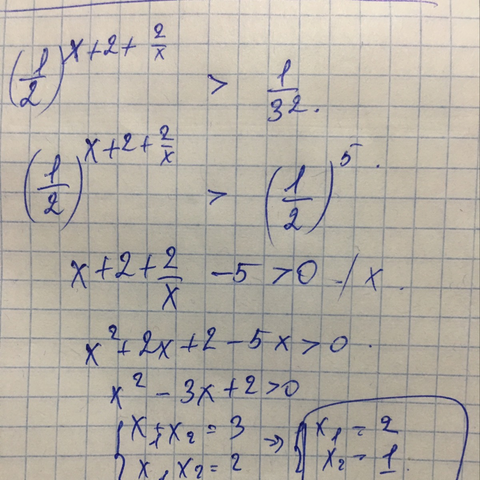 (1/2)^(x+2+2/x) > 1/32.
(1/2)^(x+2+2/x) > (1/2)^5.
x+2+2/x -5>0 -/x.
x²+2x+2-5x>0.
x²-3x+2>0
{x₁+x₂=3 => {x₁=2
x₁x₂=2 x₂=1.